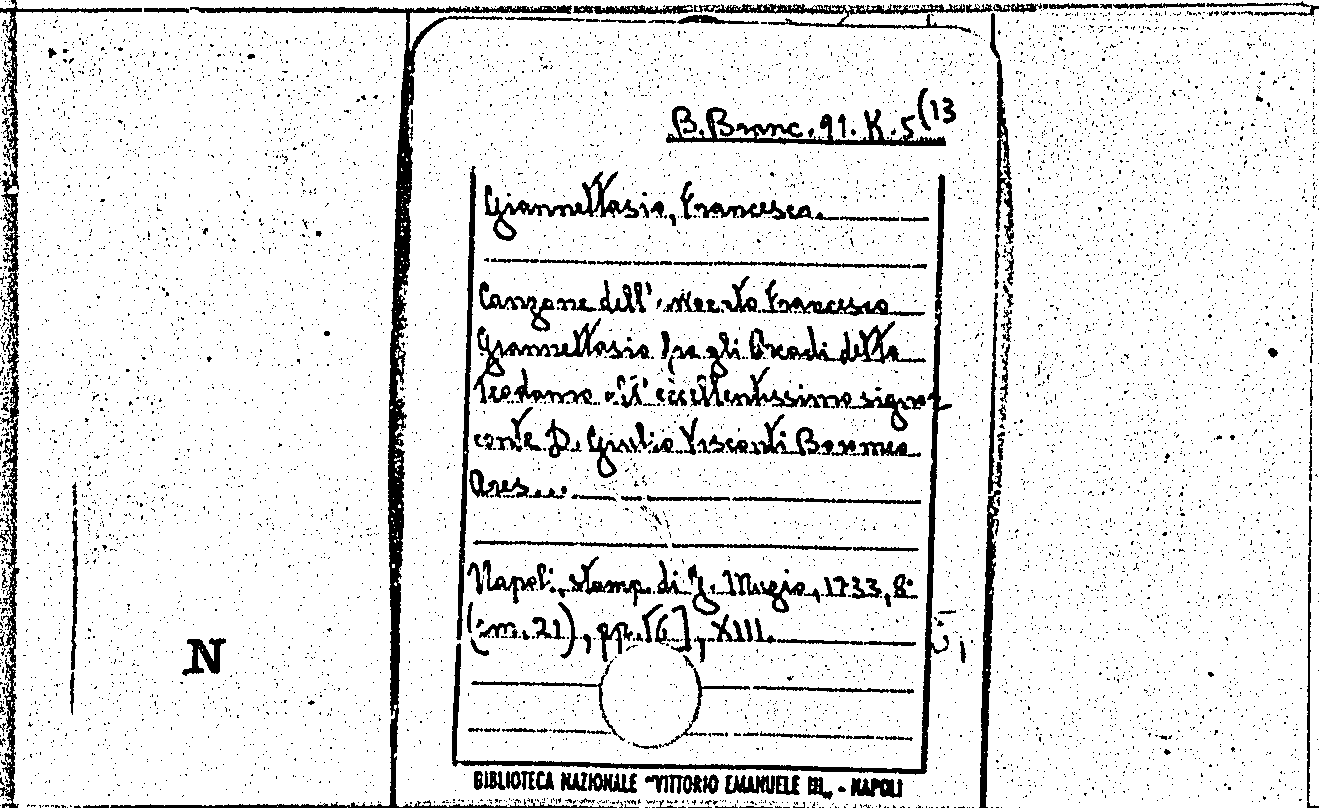 B. Branc. 91. K. 5(13
Giannettasio, Francesco.
Canzone dell' Francesco
Giannettasio fra gli Arcadi detto
Teodamo all'eccellentissimo signor
conte D. Giulio Visconti Boromeo
Ares...
Napoli, stamp. di G. Muzio, 1733, 8°
(cm. 21), pp. [6], XIII.
N
BIBLIOTECA NAZIONALE "VITTORIO EMANUELE III„ - NAPOLI